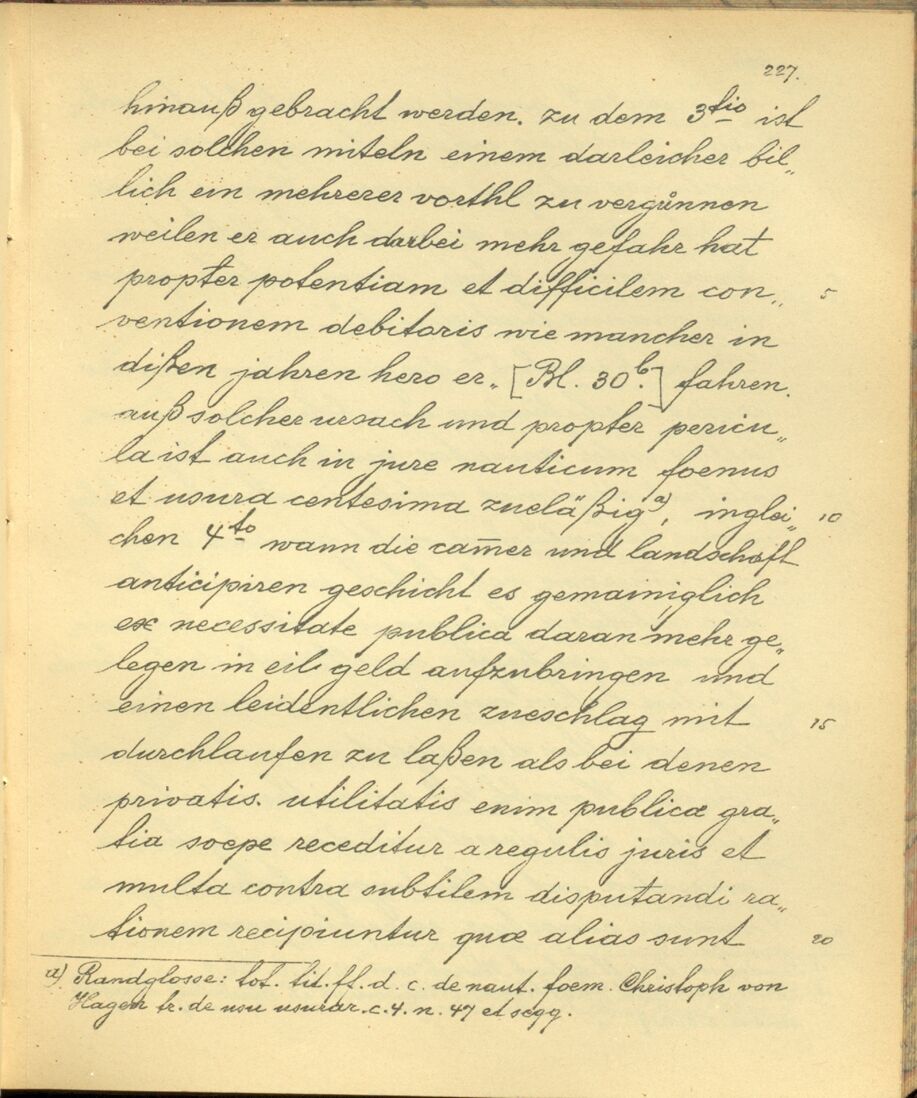 227.
hinauß gebracht werden. zu dem 3tio ist
bei solchen miteln einem darleicher bil„
lich ein mehrerer vorthl zu vergůnnen
weilen er auch darbei mehr gefahr hat
propter potentiam et difficilem con„ 5
ventionem debitoris wie mancher in
dißen jahren hero er„ [Bl. 30b.] fahren.
auß solcher ursach und propter pericu„
la ist auch in jure nauticum foenus
et usura centesima zueläßig a), inglei„ 10
chen 4to wann die cam̄er und landschaft
anticipiren geschicht es gemainiglich
ex necessitate publica daran mehr ge„
legen in eil geld aufzubringen und
einen leidentlichen zueschlag mit 15
durchlaufen zu laßen als bei denen
privatis. utilitatis enim publicæ gra„
tia soepe receditur a regulis juris et
multa contra subtilem disputandi ra„
tionem recipiuntur quæ alias sunt 20
a) Randglosse: tot. tit. ff. d. c. de naut. foem. Christoph von
Hagen tr. de usu usurar. c. 4. n. 47 et seqq.